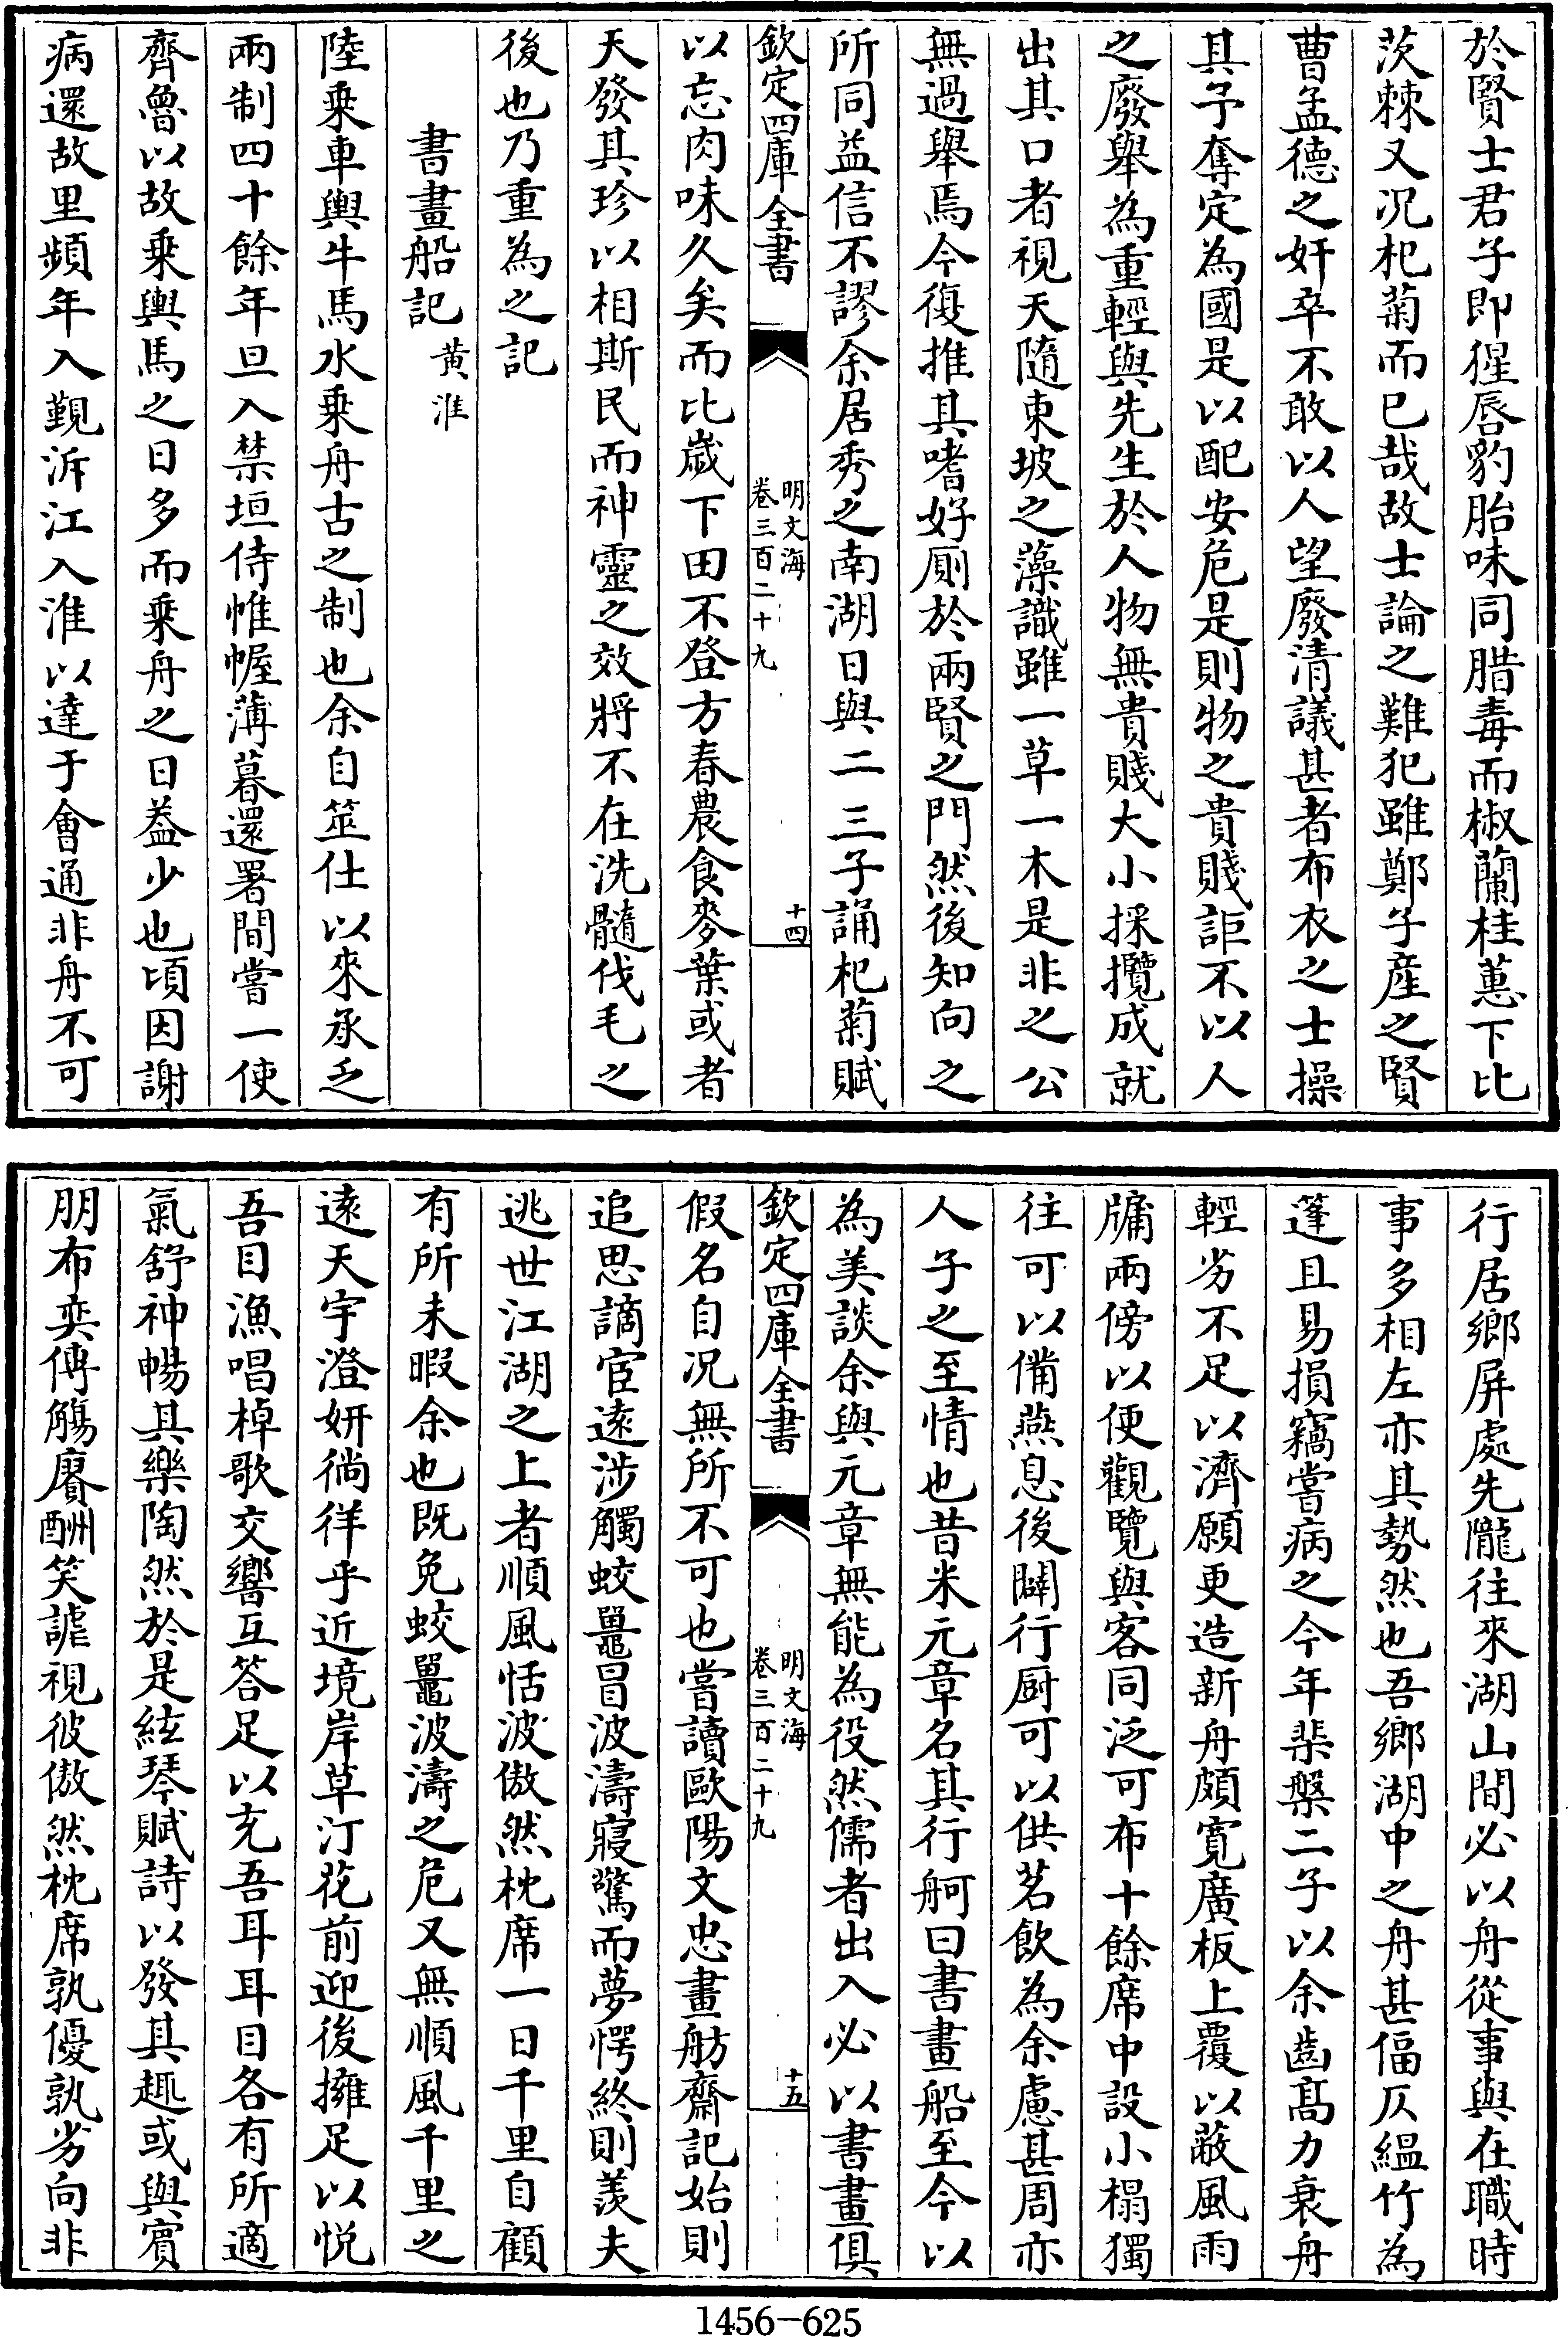 於賢士君子即猩唇豹胎味同腊毒而椒蘭桂蕙下比
茨棘又況杞菊而已哉故士論之難犯雖鄭子産之賢
曹孟德之奸卒不敢以人望廢清議甚者布衣之士操
其予奪定為國是以配安危是則物之貴賤詎不以人
之廢舉為重輕與先生於人物無貴賤大小採攬成就
出其口者視天隨東坡之藻識雖一草一木是非之公
無過舉焉今復推其嗜好厠於兩賢之門然後知向之
所同益信不謬余居秀之南湖日與二三子誦杞菊賦
欽定四庫全書
明文海
卷三百二十九
十四
以忘肉味久矣而比歲下田不登方春農食麥葉或者
天發其珍以相斯民而神靈之效將不在洗髓伐毛之
後也乃重為之記
書畫船記 黄淮
陸乗車輿牛馬水乗舟古之制也余自筮仕以來承乏
兩制四十餘年旦入禁垣侍帷幄薄暮還署間嘗一使
齊魯以故乗輿馬之日多而乗舟之日益少也頃因謝
病還故里頻年入覲泝江入淮以達于會通非舟不可
行居鄉屏處先隴往來湖山間必以舟從事與在職時
事多相左亦其勢然也吾鄉湖中之舟甚偪仄緼竹為
篷且易損竊嘗病之今年棐槃二子以余齒髙力衰舟
輕劣不足以濟願更造新舟頗寛廣板上覆以蔽風雨
牗兩傍以便觀覽與客同泛可布十餘席中設小榻獨
往可以備燕息後闢行厨可以供茗飲為余慮甚周亦
人子之至情也昔米元章名其行舸曰書畫船至今以
為美談余與元章無能為役然儒者出入必以書畫俱
欽定四庫全書
明文海
卷三百二十九
十五
假名自况無所不可也嘗讀歐陽文忠畫舫齋記始則
追思謫宦逺涉觸蛟鼉冒波濤寢驚而夢愕終則羨夫
逃世江湖之上者順風恬波傲然枕席一日千里自顧
有所未暇余也既免蛟鼉波濤之危又無順風千里之
逺天宇澄妍徜徉乎近境岸草汀花前迎後擁足以悦
吾目漁唱棹歌交響互答足以充吾耳耳目各有所適
氣舒神暢其樂陶然於是絃琴賦詩以發其趣或與賓
朋布奕傳觴賡酬笑謔視彼傲然枕席孰優孰劣向非
1456-625